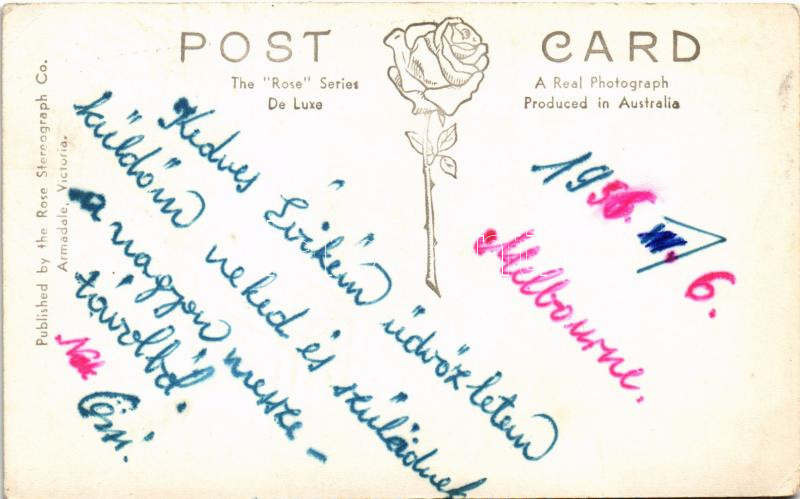 POST CARD
The "Rose" Series
De Luxe
A Real Photograph
Produced in Australia
Published by the Rose Stereograph Co.
Armadale, Victoria.
1956. 6.
Melbourne.
Kedves Évikém üdvözletem
küldöm neked és szüleidnek
a nagyon messze-
távolból.